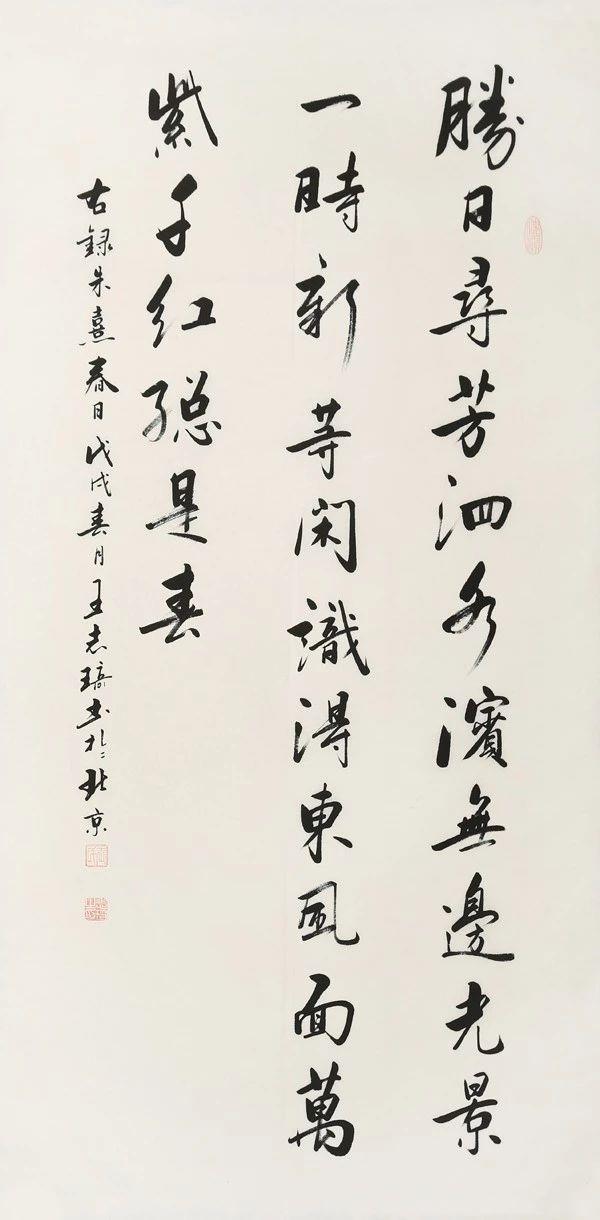 勝日尋芳泗水濱無邊光景
一時新等閑識得東風面萬
紫千红總是春
右録朱熹春日戊戌春月王志琦书於北京